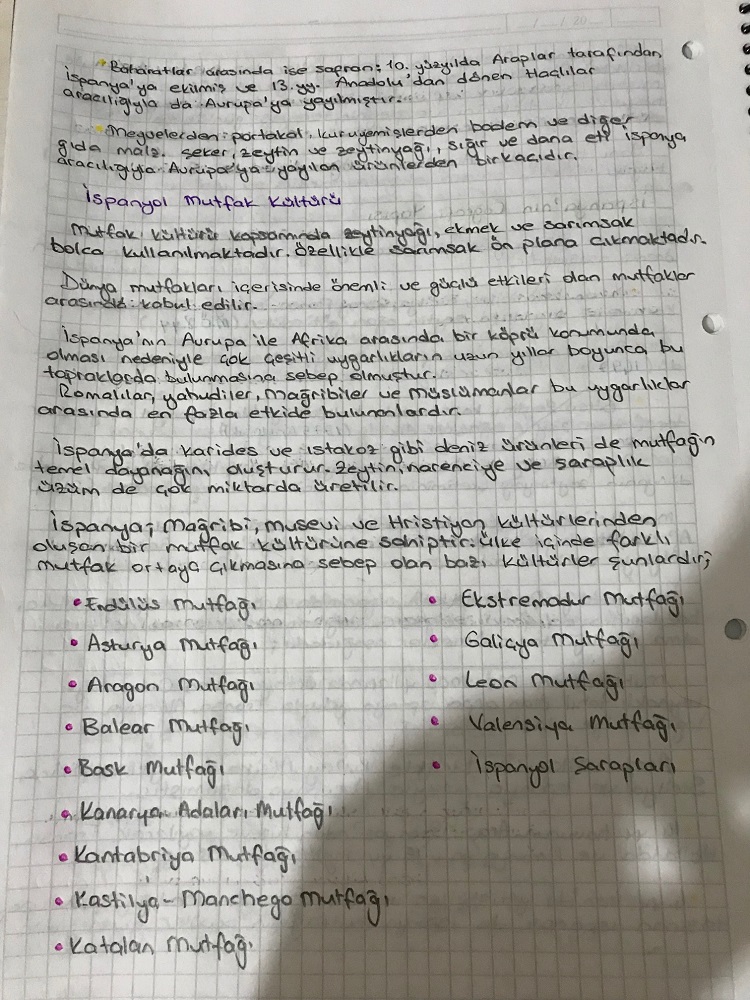 Baharatlar arasında ise safran; 10. yüzyılda Araplar tarafından
İspanya'ya ekilmiş ve 13.yy. Anadolu'dan dönen Haçlılar
aracılığıyla da Avrupa'ya yayılmıştır.
Meyvelerden: portakal, kuruyemişlerden badem ve diğer
gıda malz. şeker, zeytin ve zeytinyağı, sığır ve dana eti İspanya
aracılığıyla Avrupa'ya yayılan ürünlerden birkaçıdır.
İspanyol Mutfak Kültürü
Mutfak kültürü kapsamında zeytinyağı, ekmek ve sarımsak
bolca kullanılmaktadır. Özellikle sarımsak ön plana çıkmaktadır.
Dünya mutfakları içerisinde önemli ve güçlü etkileri olan mutfaklar
arasında kabul edilir.
İspanya'nın Avrupa ile Afrika arasında bir köprü konumunda
olması nedeniyle çok çeşitli uygarlıkların uzun yıllar boyunca bu
topraklarda bulunmasına sebep olmuştur.
Romalılar, yahudiler, mağribiler ve müslümanlar bu uygarlıklar
arasında en fazla etkide bulunanlardır.
İspanya'da karides ve ıstakoz gibi deniz ürünleri de mutfağın
temel dayanağını oluşturur. Zeytin, narenciye ve şaraplık
üzüm de çok miktarda üretilir.
İspanya; mağribi, musevi ve Hristiyan kültürlerinden
oluşan bir mutfak kültürüne sahiptir. Ülke içinde farklı
mutfak ortaya çıkmasına sebep olan bazı kültürler şunlardır;
• Endülüs Mutfağı
• Asturya Mutfağı
• Aragon Mutfağı
• Balear Mutfağı
• Bask Mutfağı
• Kanarya Adaları Mutfağı
• Kantabriya Mutfağı
• Kastilya-Manchego Mutfağı
• Katalan Mutfağı
• Ekstremadur Mutfağı
• Galiçya Mutfağı
• Leon Mutfağı
• Valensiya Mutfağı
• İspanyol Şarapları